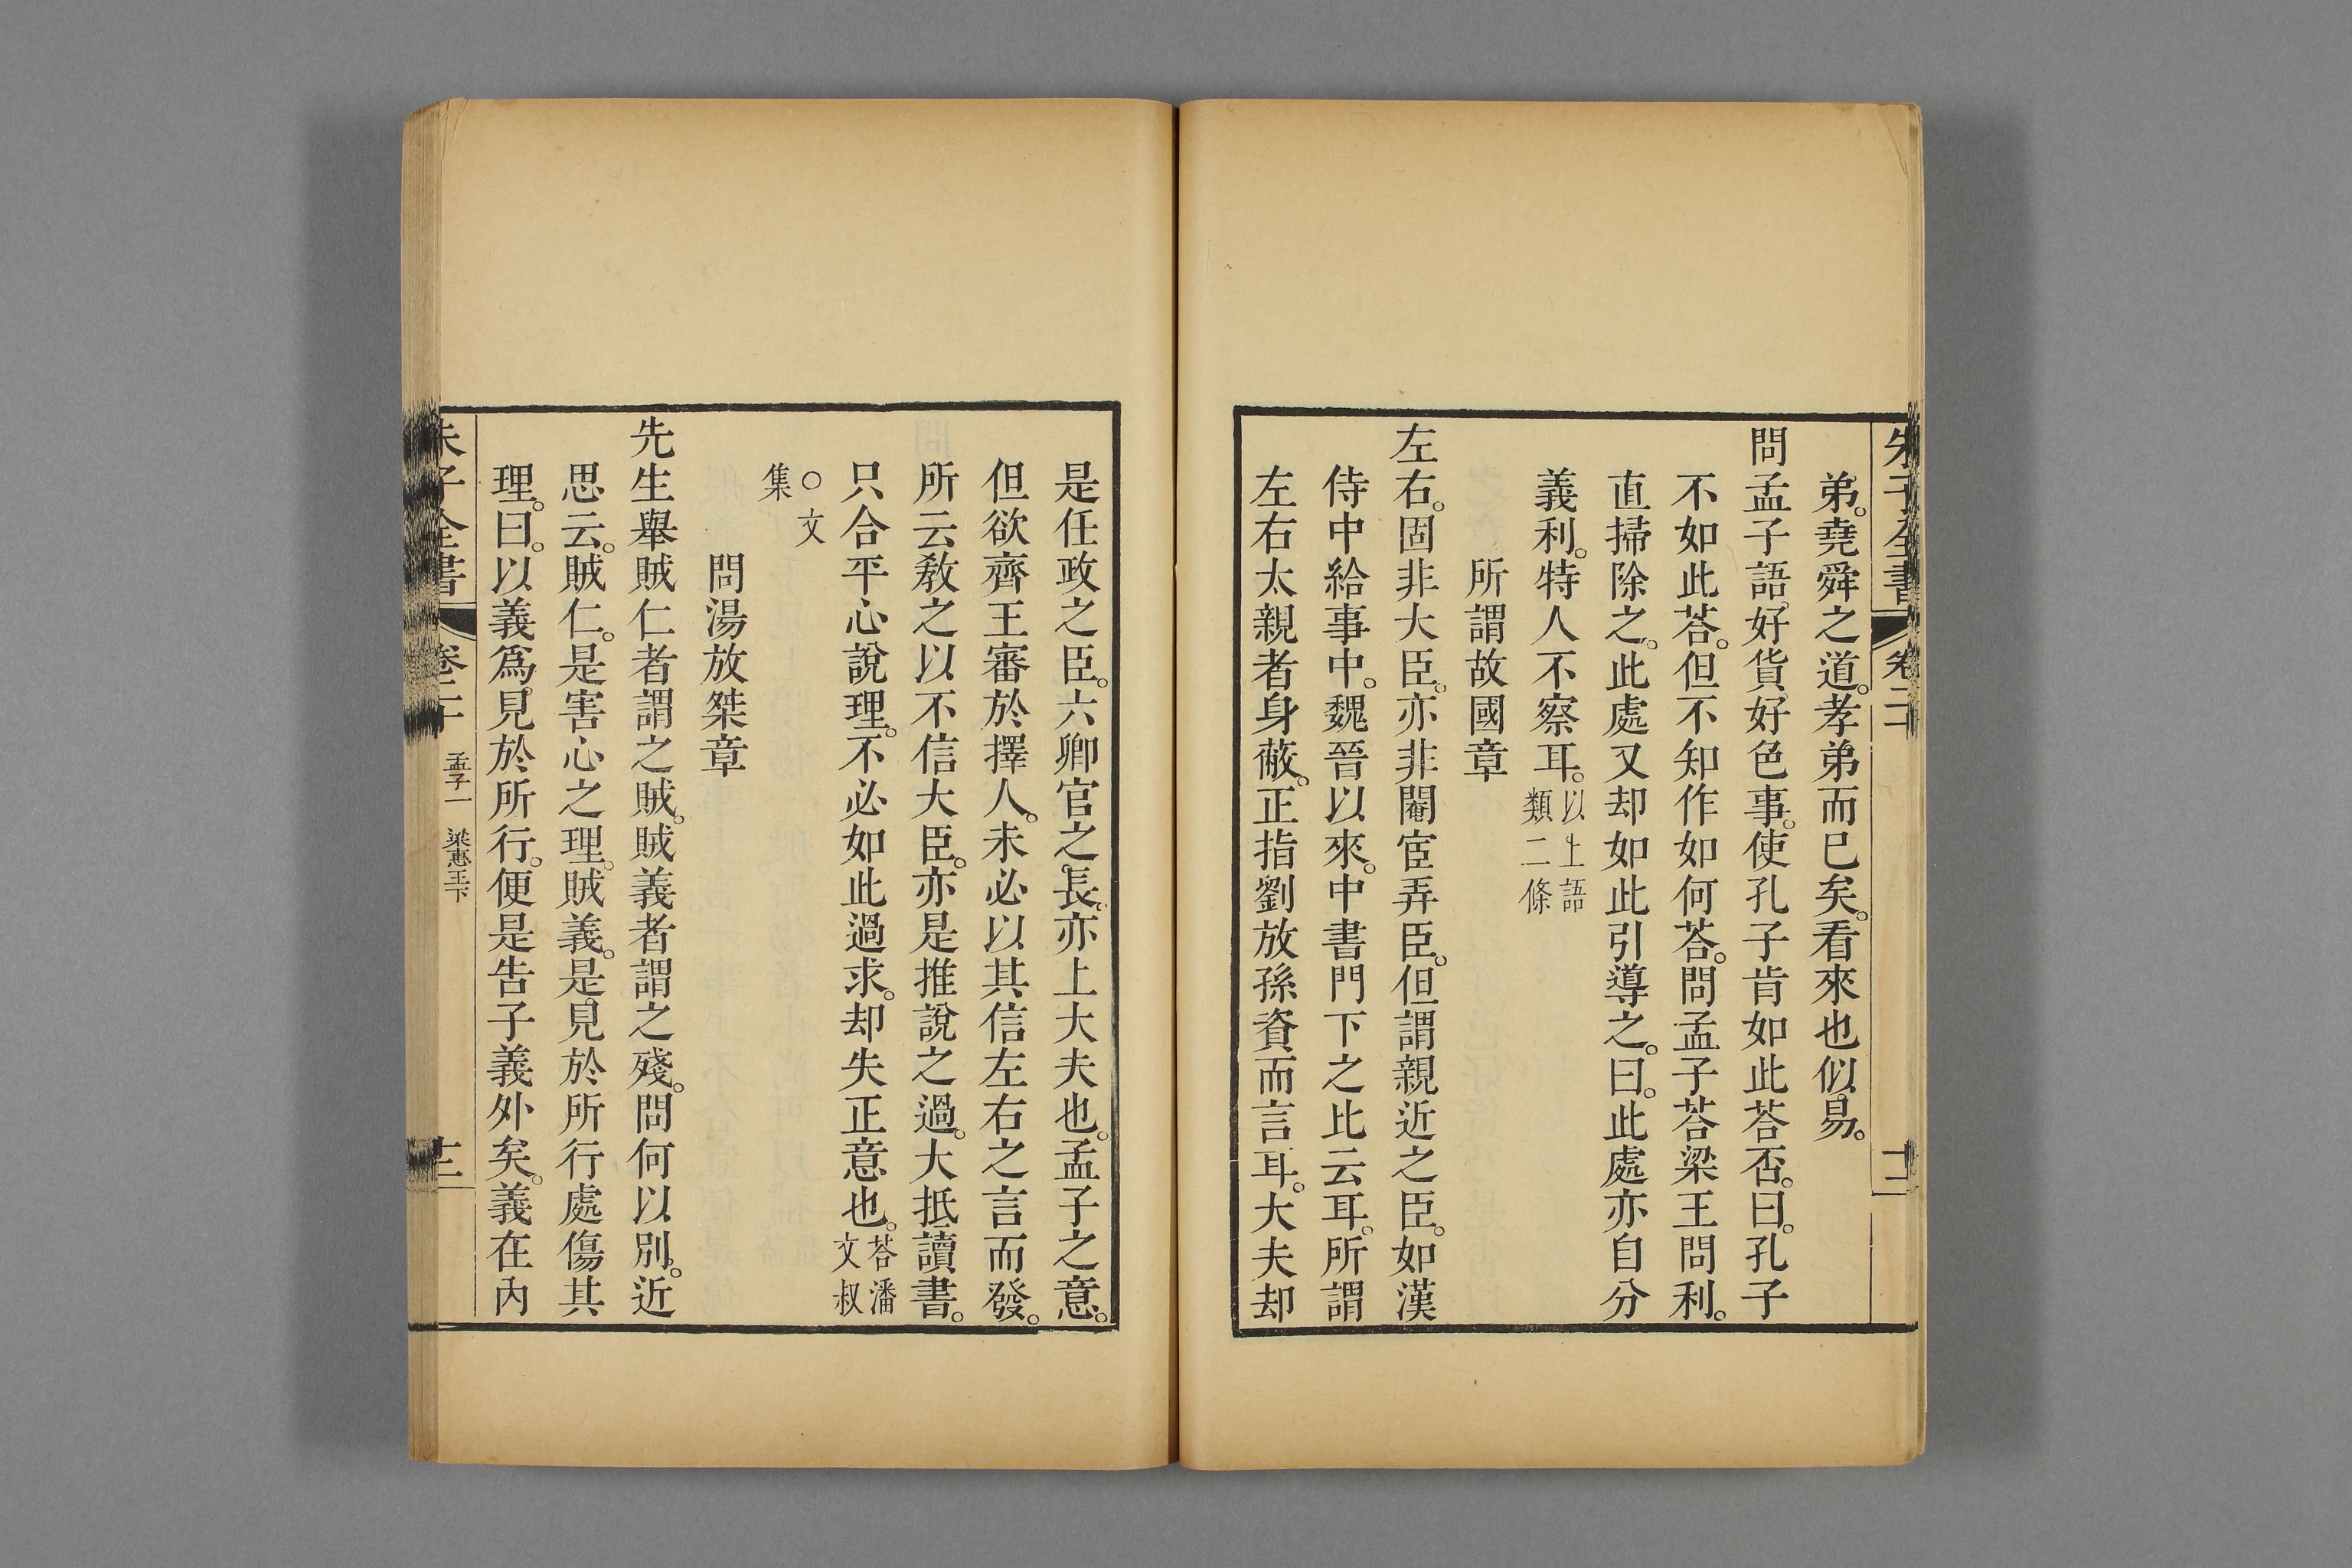 朱子全書 卷二十 十二
弟。堯舜之道。孝弟而已矣。看來也似易。
問孟子語好貨好色事。使孔子肯如此荅否。曰。孔子
不如此荅。但不知作如何荅。問孟子荅梁王問利。
直掃除之。此處又却如此引導之。曰。此處亦自分
義利。特人不察耳。以上語類二條
所謂故國章
左右。固非大臣。亦非閹宦弄臣。但謂親近之臣。如漢
侍中給事中。魏晉以來。中書門下之比云耳。所謂
左右太親者身蔽。正指劉放孫資而言耳。大夫却
是任政之臣。六卿官之長。亦上大夫也。孟子之意。
但欲齊王審於擇人。未必以其信左右之言而發。
所云敎之以不信大臣。亦是推說之過。大抵讀書。
只合平心說理。不必如此過求。却失正意也。荅潘文叔
○文集
問湯放桀章
先生舉賊仁者謂之賊。賊義者謂之殘。問何以別。近
思云。賊仁。是害心之理。賊義。是見於所行處傷其
理。曰。以義爲見於所行。便是告子義外矣。義在內
朱子全書 卷二十 孟子一 梁惠王下 十二